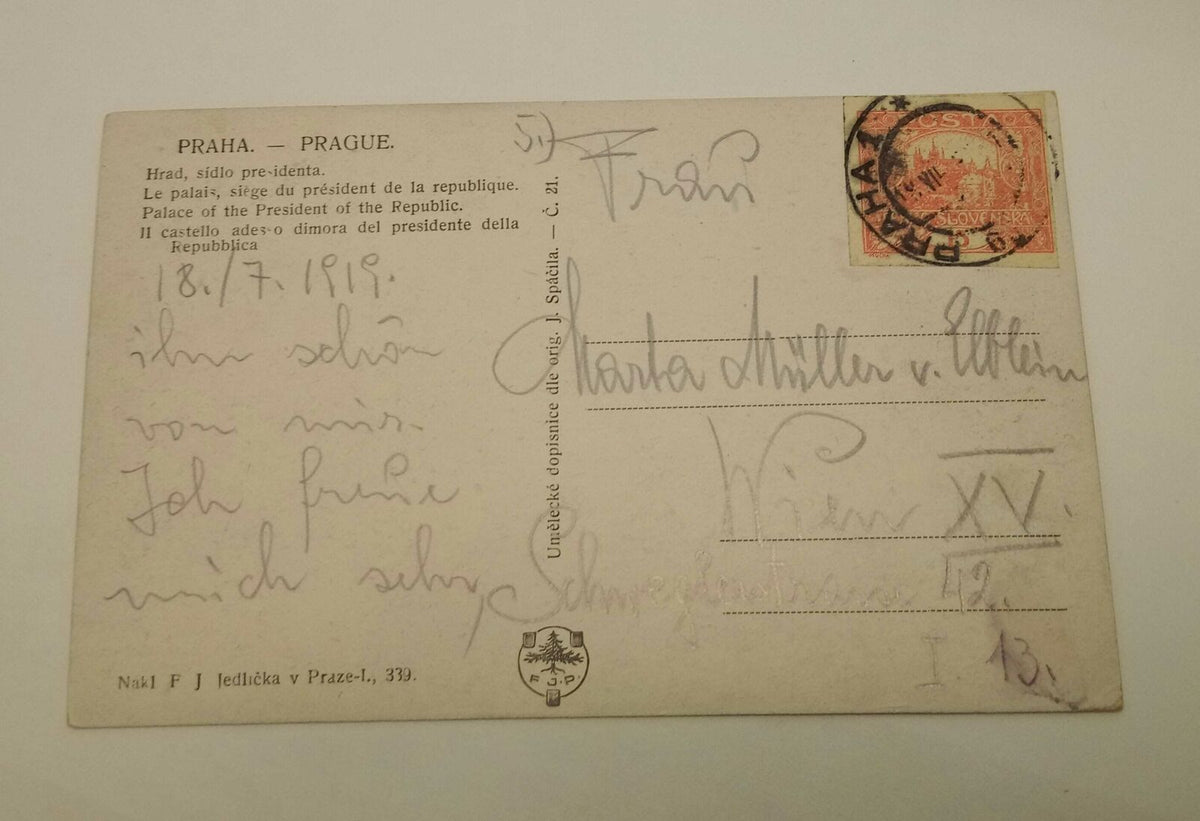 PRAHA. — PRAGUE.
Hrad, sídlo presidenta.
Le palais, siège du président de la republique.
Palace of the President of the Republic.
Il castello adesso dimora del presidente della
Repubblica
18./7. 1919.
ihn schön
von mir.
Ich freue
mich sehr,
Nakl F J Jedlička v Praze-I., 339.
Umělecké dopisnice dle orig. J. Spáčila. — Č. 21.
F. J. P.
5.)
Frau
Marta Müller v.
Wien XV.
42.
I. 13.
PRAHA 1
VII
ČS
SLOVENSKÁ